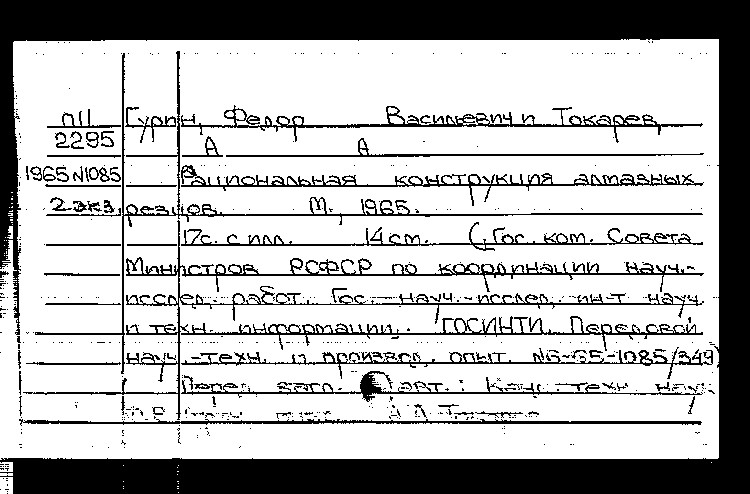 П11 Гурин, Федор Васильевич и Токарев,
2295 А А
1965 N1085 Рациональная конструкция алмазных
2 экз. резцов. М., 1965.
17с. с илл. 14 см. (Гос. ком. Совета
Министров РСФСР по координации науч.-
исслед. работ. Гос. науч.-исслед. ин-т науч
и техн. информации. ГОСИНТИ. Передовой
науч.-техн. и производ. опыт. N6-65-1085/349)
Перед загл. авт.: Канд. техн. наук
А.А.